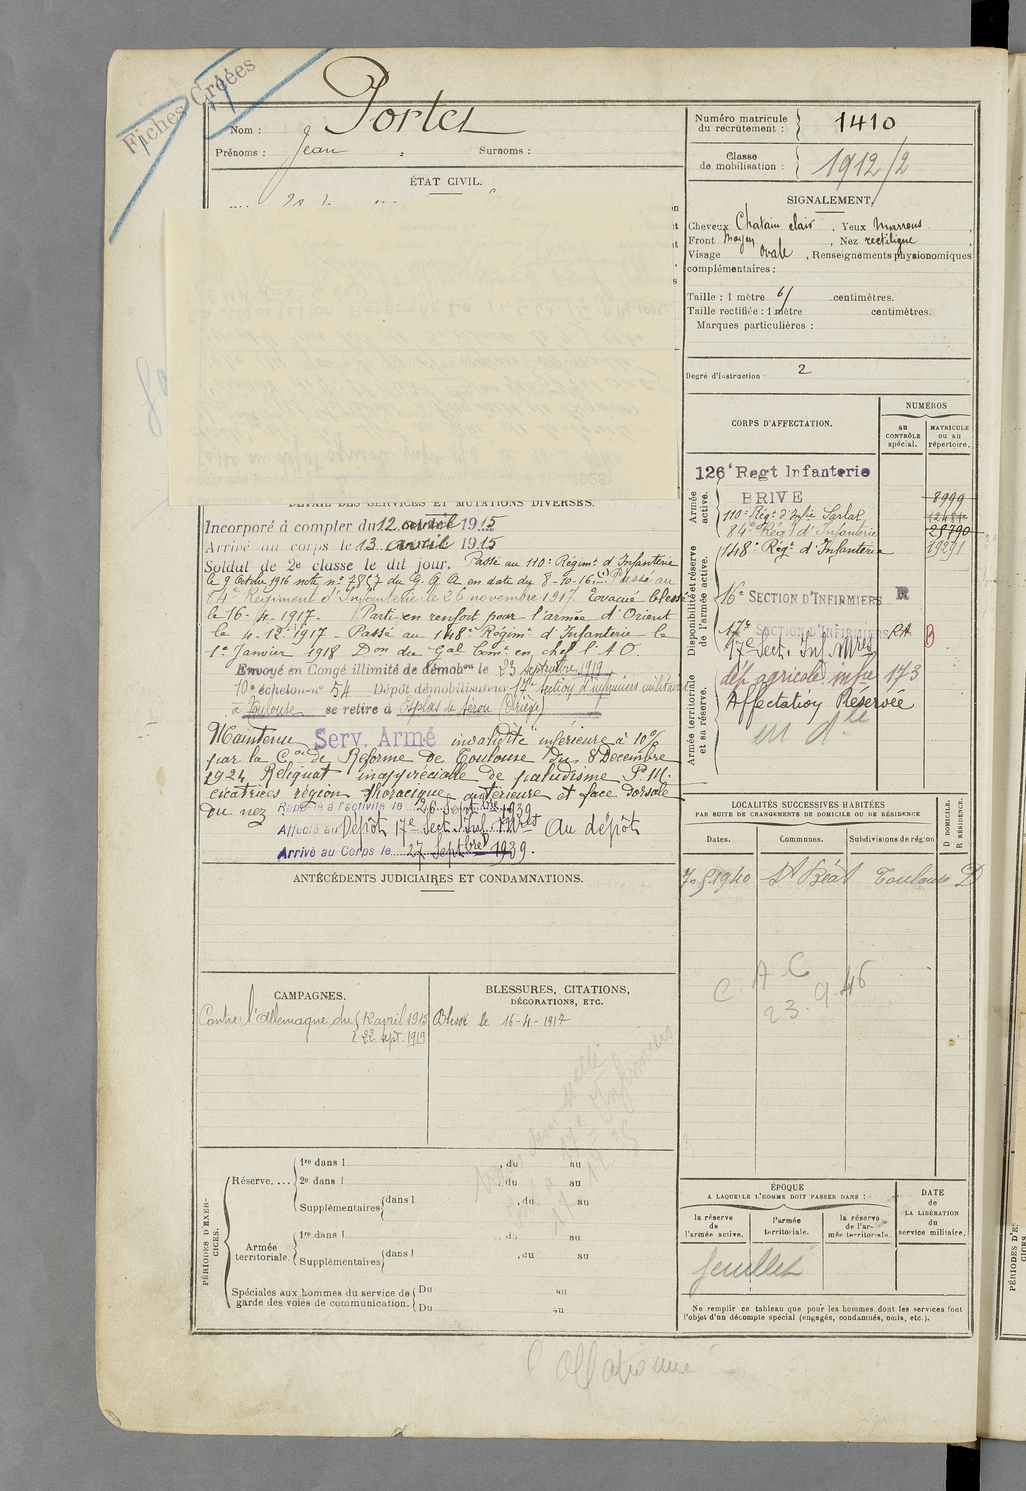 Fiches Créées
Nom : Portes
Prénoms : Jean Surnoms :
ÉTAT CIVIL.
DÉTAIL DES SERVICES ET MUTATIONS DIVERSES.
Incorporé à compter du 12 avril 1915
Arrivé au corps le 13 avril 1915
Soldat de 2e classe le dit jour. Passé au 110e Régimt d'Infanterie
le 9 Octobre 1916 note no 7857 du G. Q. G. A en date du 8-10-16. Passé au
84e Régiment d'Infanterie le 26 novembre 1917. Evacué blessé
le 16-4-1917. Parti en renfort pour l'armée d'Orient
le 4-12-1917 - Passé au 148e Régimt d'Infanterie le
1er Janvier 1918 Don du Gal Comt en chef l'A O.
Envoyé en Congé illimité de démobon le 23 septembre 1919
10e échelon no 54 Dépôt démobilisateur 17e section d'infirmiers militaires
à Toulouse se retire à Esplas de Sérou (Ariège)
Maintenu Serv. Armé invalidité inférieure à 10%
par la Con de Réforme de Toulouse du 8 Décembre
1924 Reliquat inappréciable de paludisme P.M.
cicatrices région thoracique antérieure et face dorsale
du nez.
Rappelé à l'activité le 26 Septbre 1939
Affecté au Dépôt 17e Sect. Inf. Mres Au dépôt
Arrivé au Corps le 27 Septbre 1939.
ANTÉCÉDENTS JUDICIAIRES ET CONDAMNATIONS.
CAMPAGNES.
Contre l'Allemagne du 12 avril 1915
22 sept. 1919
BLESSURES, CITATIONS,
DÉCORATIONS, ETC.
Blessé le 16-4-1917
PÉRIODES D'EXERCICES.
Réserve.... 1re dans l , du au
2e dans l , du au
Supplémentaires dans l , du au
Armée territoriale. 1re dans l , du au
Supplémentaires dans l , du au
Spéciales aux hommes du service de Du au
garde des voies de communication. Du au
Numéro matricule
du recrutement : 1410
Classe
de mobilisation : 1912/2
SIGNALEMENT.
Cheveux Chatain clair , Yeux Marrons ,
Front Moyen , Nez rectiligne ,
Visage Ovale , Renseignements physionomiques
complémentaires :
Taille : 1 mètre 61 centimètres.
Taille rectifiée : 1 mètre centimètres.
Marques particulières :
Degré d'instruction 2
CORPS D'AFFECTATION.
NUMÉROS
au
CONTRÔLE
spécial.
MATRICULE
ou au
répertoire.
Armée
active.
126e Regt Infanterie
BRIVE 8999
110e Régt d'Infie Sarlat
84e Régt d'Infanterie 28790
148e Régt d'Infanterie 19291
Disponibilité et réserve
de l'armée active.
16e SECTION D'INFIRMIERS R
17e SECTION D'INFIRMIERS R.A. B
17e Sect. Inf. Mres
dép agricole infre 173
Armée territoriale
et sa réserve.
Affectation Réservée
LOCALITÉS SUCCESSIVES HABITÉES
PAR SUITE DE CHANGEMENTS DE DOMICILE OU DE RÉSIDENCE
Dates. Communes. Subdivisions de région
D DOMICILE.
R RÉSIDENCE.
7.5.1940 St Béat Toulouse D
C. A. C
23. 9. 46
ÉPOQUE
A LAQUELLE L'HOMME DOIT PASSER DANS :
la réserve
de
l'armée active.
l'armée
territoriale.
la réserve
de l'ar-
mée territoriale.
DATE
de
LA LIBÉRATION
du
service militaire.
feuillet
Ne remplir ce tableau que pour les hommes dont les services font
l'objet d'un décompte spécial (engagés, condamnés, omis, etc.).